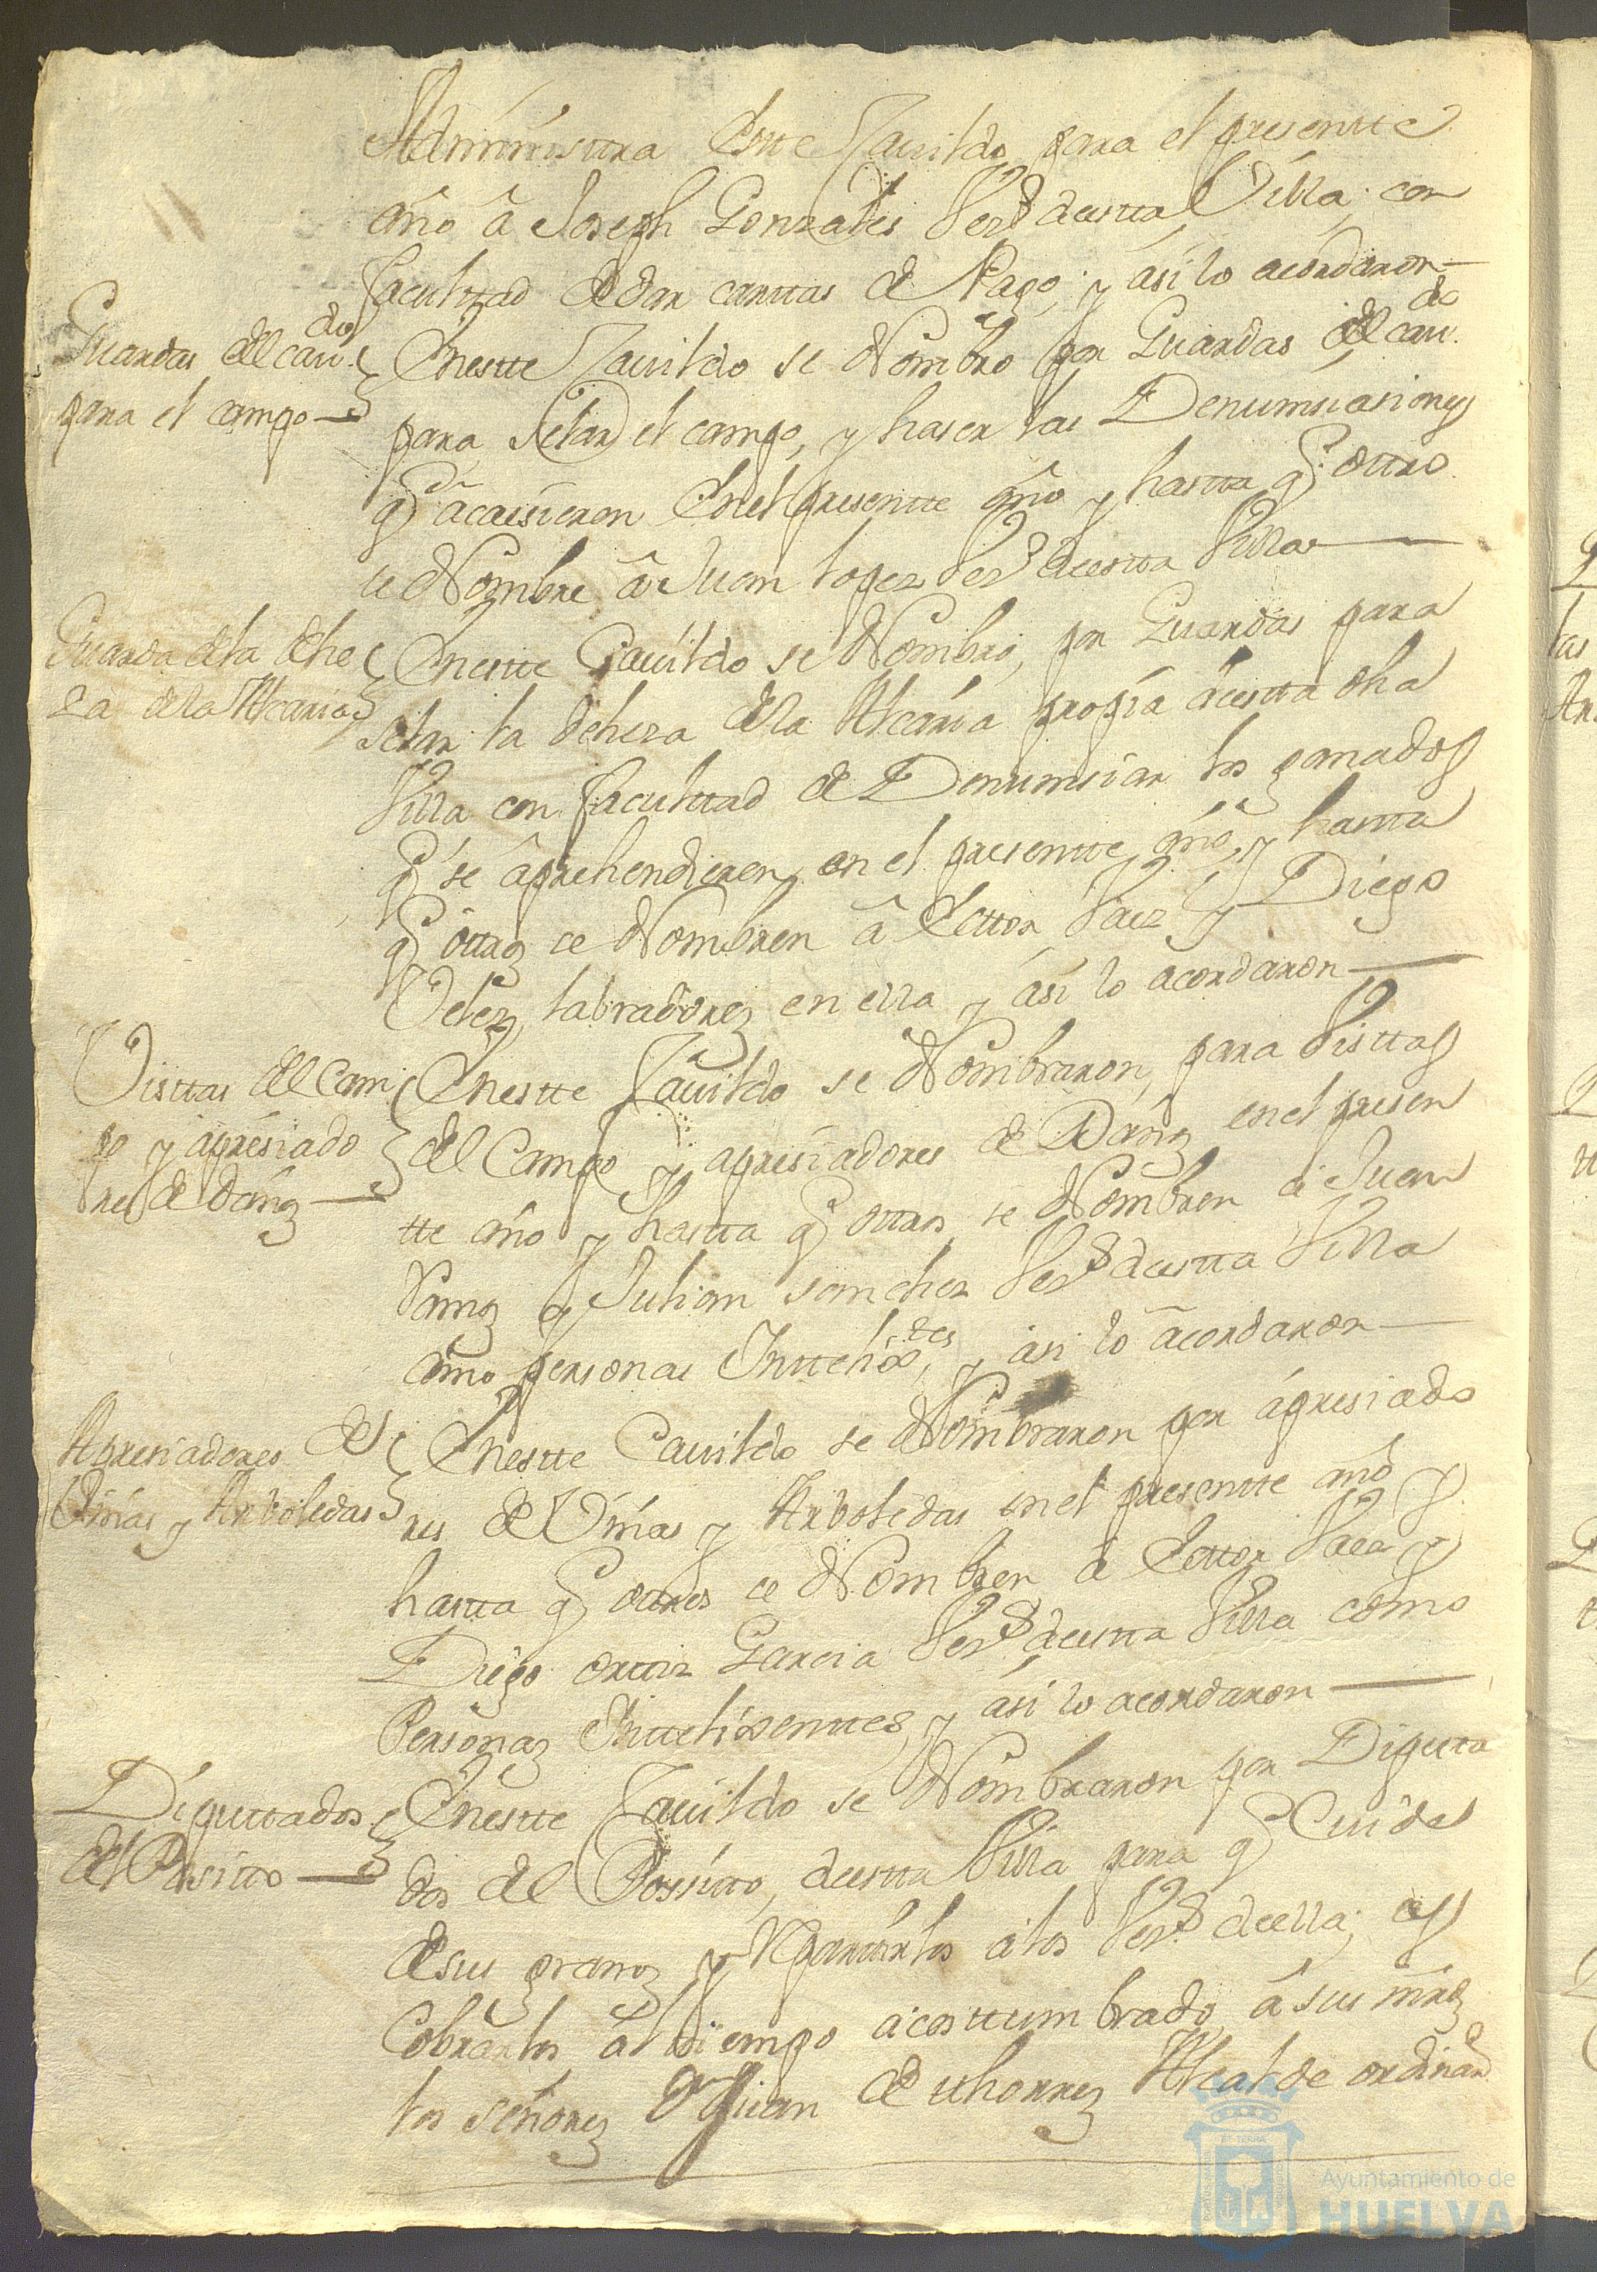 Administra Estte Cauildo para el presentte
año â Joseph Gonzales Vez.º desta Villa, con
facultad de dar carttas de Pago, y âsi lo acordaron—
Guardas del cau.do
para el campo—
Enestte Cauildo se Nombro por Guardas del cau.do
para Selar el campo, y haser las Denumsiasiones
q.e âcaesieron Enel presentte año y hastta q.e ottro
se Nombre â Juan lopez Vez.º desta Villa—
Guarda de la dehe
za de la Alcaria
Enestte Cauildo se Nombro, por Guardas para
Selar la deheza de la Alcaria propia desta dha
Villa con facultad de Denumsiar los ganados
q.e se âprehendieren en el presentte año, y hastta
q.e ôttros se Nombren â Cottor Paez y Diego
Velez, labradores en ella y âsi lo acordaron—
Visttas del Cam
po y apresiado
res de daños—
Enestte Cauildo se Nombraron, para Visttas
del Campo y apresiadores de Daños en el presen
tte año y hastta q.e ottros se Nombren â Juan
Ramos y Julian sanchez Vez.s destta Villa
como personas Intteligtes, y âsi lo âcordaron—
Apresiadores de
Viñas y Arboledas
Enestte Cauildo se Nombraron por âpresiado
res de Viñas y Arboledas en el presentte año y
hastta q.e ottros se Nombren â Cottor Paez y
Diego orttiz Garcia Vez.s destta Villa como
Personas Intteligenttes, y âsi lo acordaron—
Diputtados
del Positto—
Enestte Cauildo se Nombraron por Diputta
dos del Possitto, destta Villa para q.e Cuiden
de sus granos y Repartirlos âlos Vez.s de ella, y
Cobrarlos âl tiempo acosttumbrado â sus mrds
los señores Dn Juan de thorres Alcalde ordinar.º
Ayuntamiento de
HUELVA